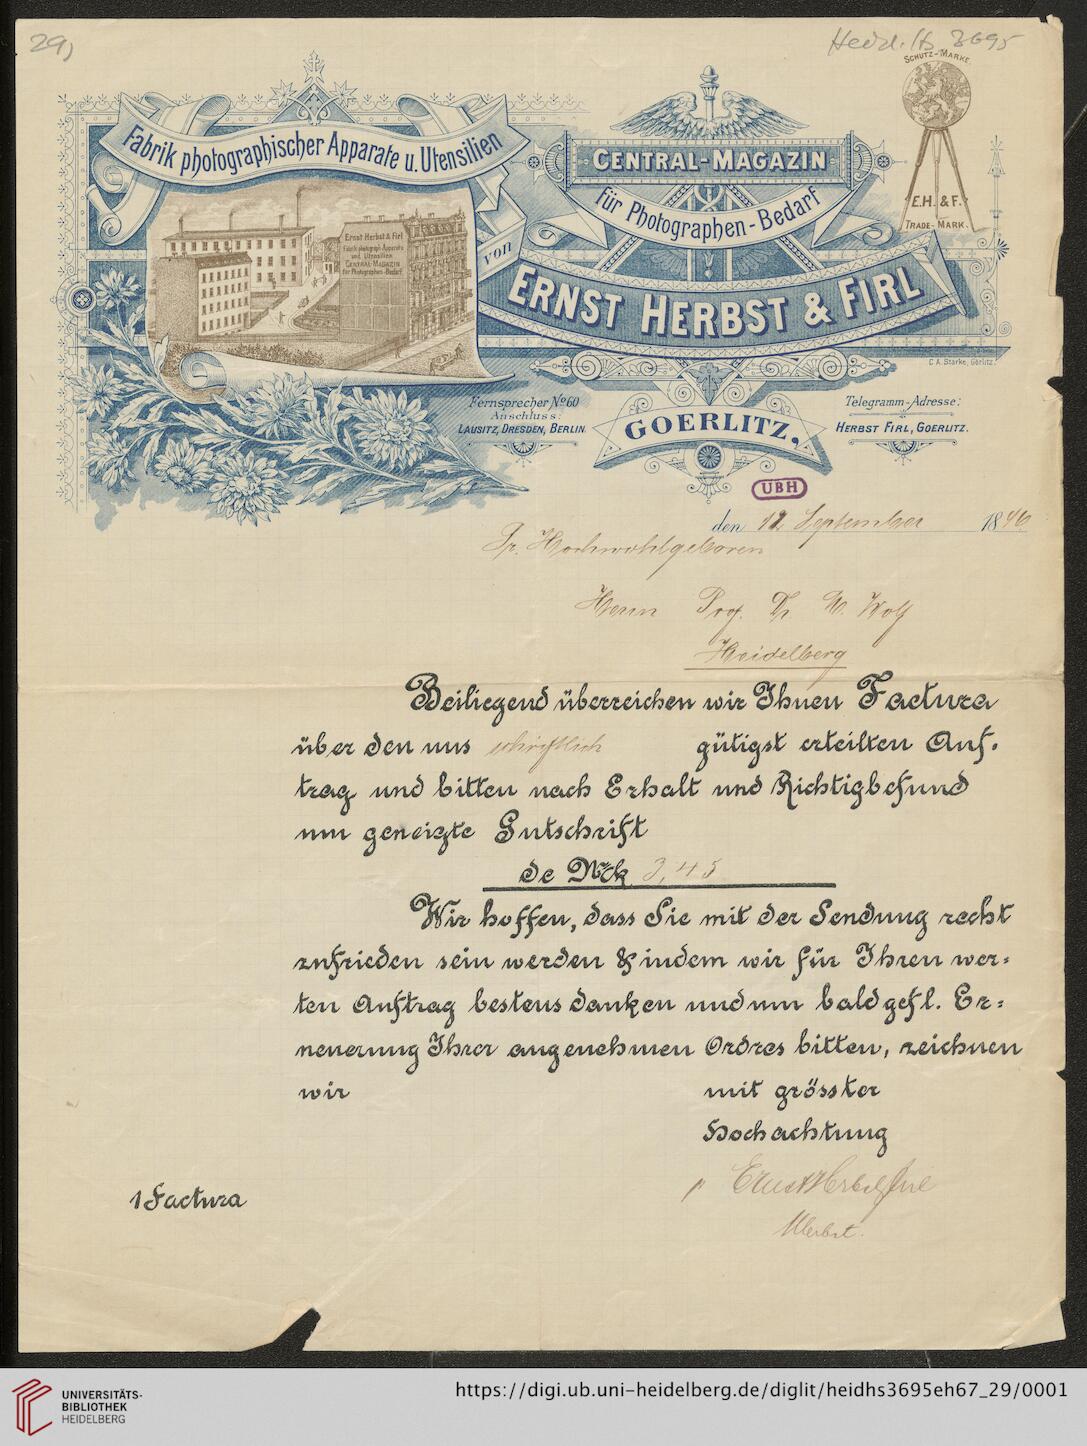 29)
Heid. Hs 3695
SCHUTZ-MARKE
E.H. & F.
TRADE-MARK.
Fabrik photographischer Apparate u. Utensilien
Ernst Herbst & Firl
Fabrik photograph. Apparate
und Utensilien
CENTRAL-MAGAZIN
für Photographen-Bedarf
CENTRAL-MAGAZIN
für Photographen-Bedarf
von
ERNST HERBST & FIRL
C.A. Starke, Görlitz.
Fernsprecher No 60
Anschluss:
LAUSITZ, DRESDEN, BERLIN.
GOERLITZ,
Telegramm-Adresse:
HERBST FIRL, GOERLITZ.
UBH
den 12 September 1896
Sr. Hochwohlgeboren
Herrn Prof. Dr. M. Wolf
Heidelberg
Beiliegend überreichen wir Ihnen Factura
über den uns schriftlich gütigst erteilten Auf-
trag und bitten nach Erhalt und Richtigbefund
um geneigte Gutschrift
de Mrk 3,45
Wir hoffen, dass Sie mit der Sendung recht
zufrieden sein werden & indem wir für Ihren wer=
ten Auftrag bestens danken und um bald gefl. Er=
neuerung Ihrer angenehmen Ordres bitten, zeichnen
wir mit grösster
Hochachtung
Ernst Herbst & Firl
1 Factura
UNIVERSITÄTS-
BIBLIOTHEK
HEIDELBERG
https://digi.ub.uni-heidelberg.de/diglit/heidhs3695eh67_29/0001